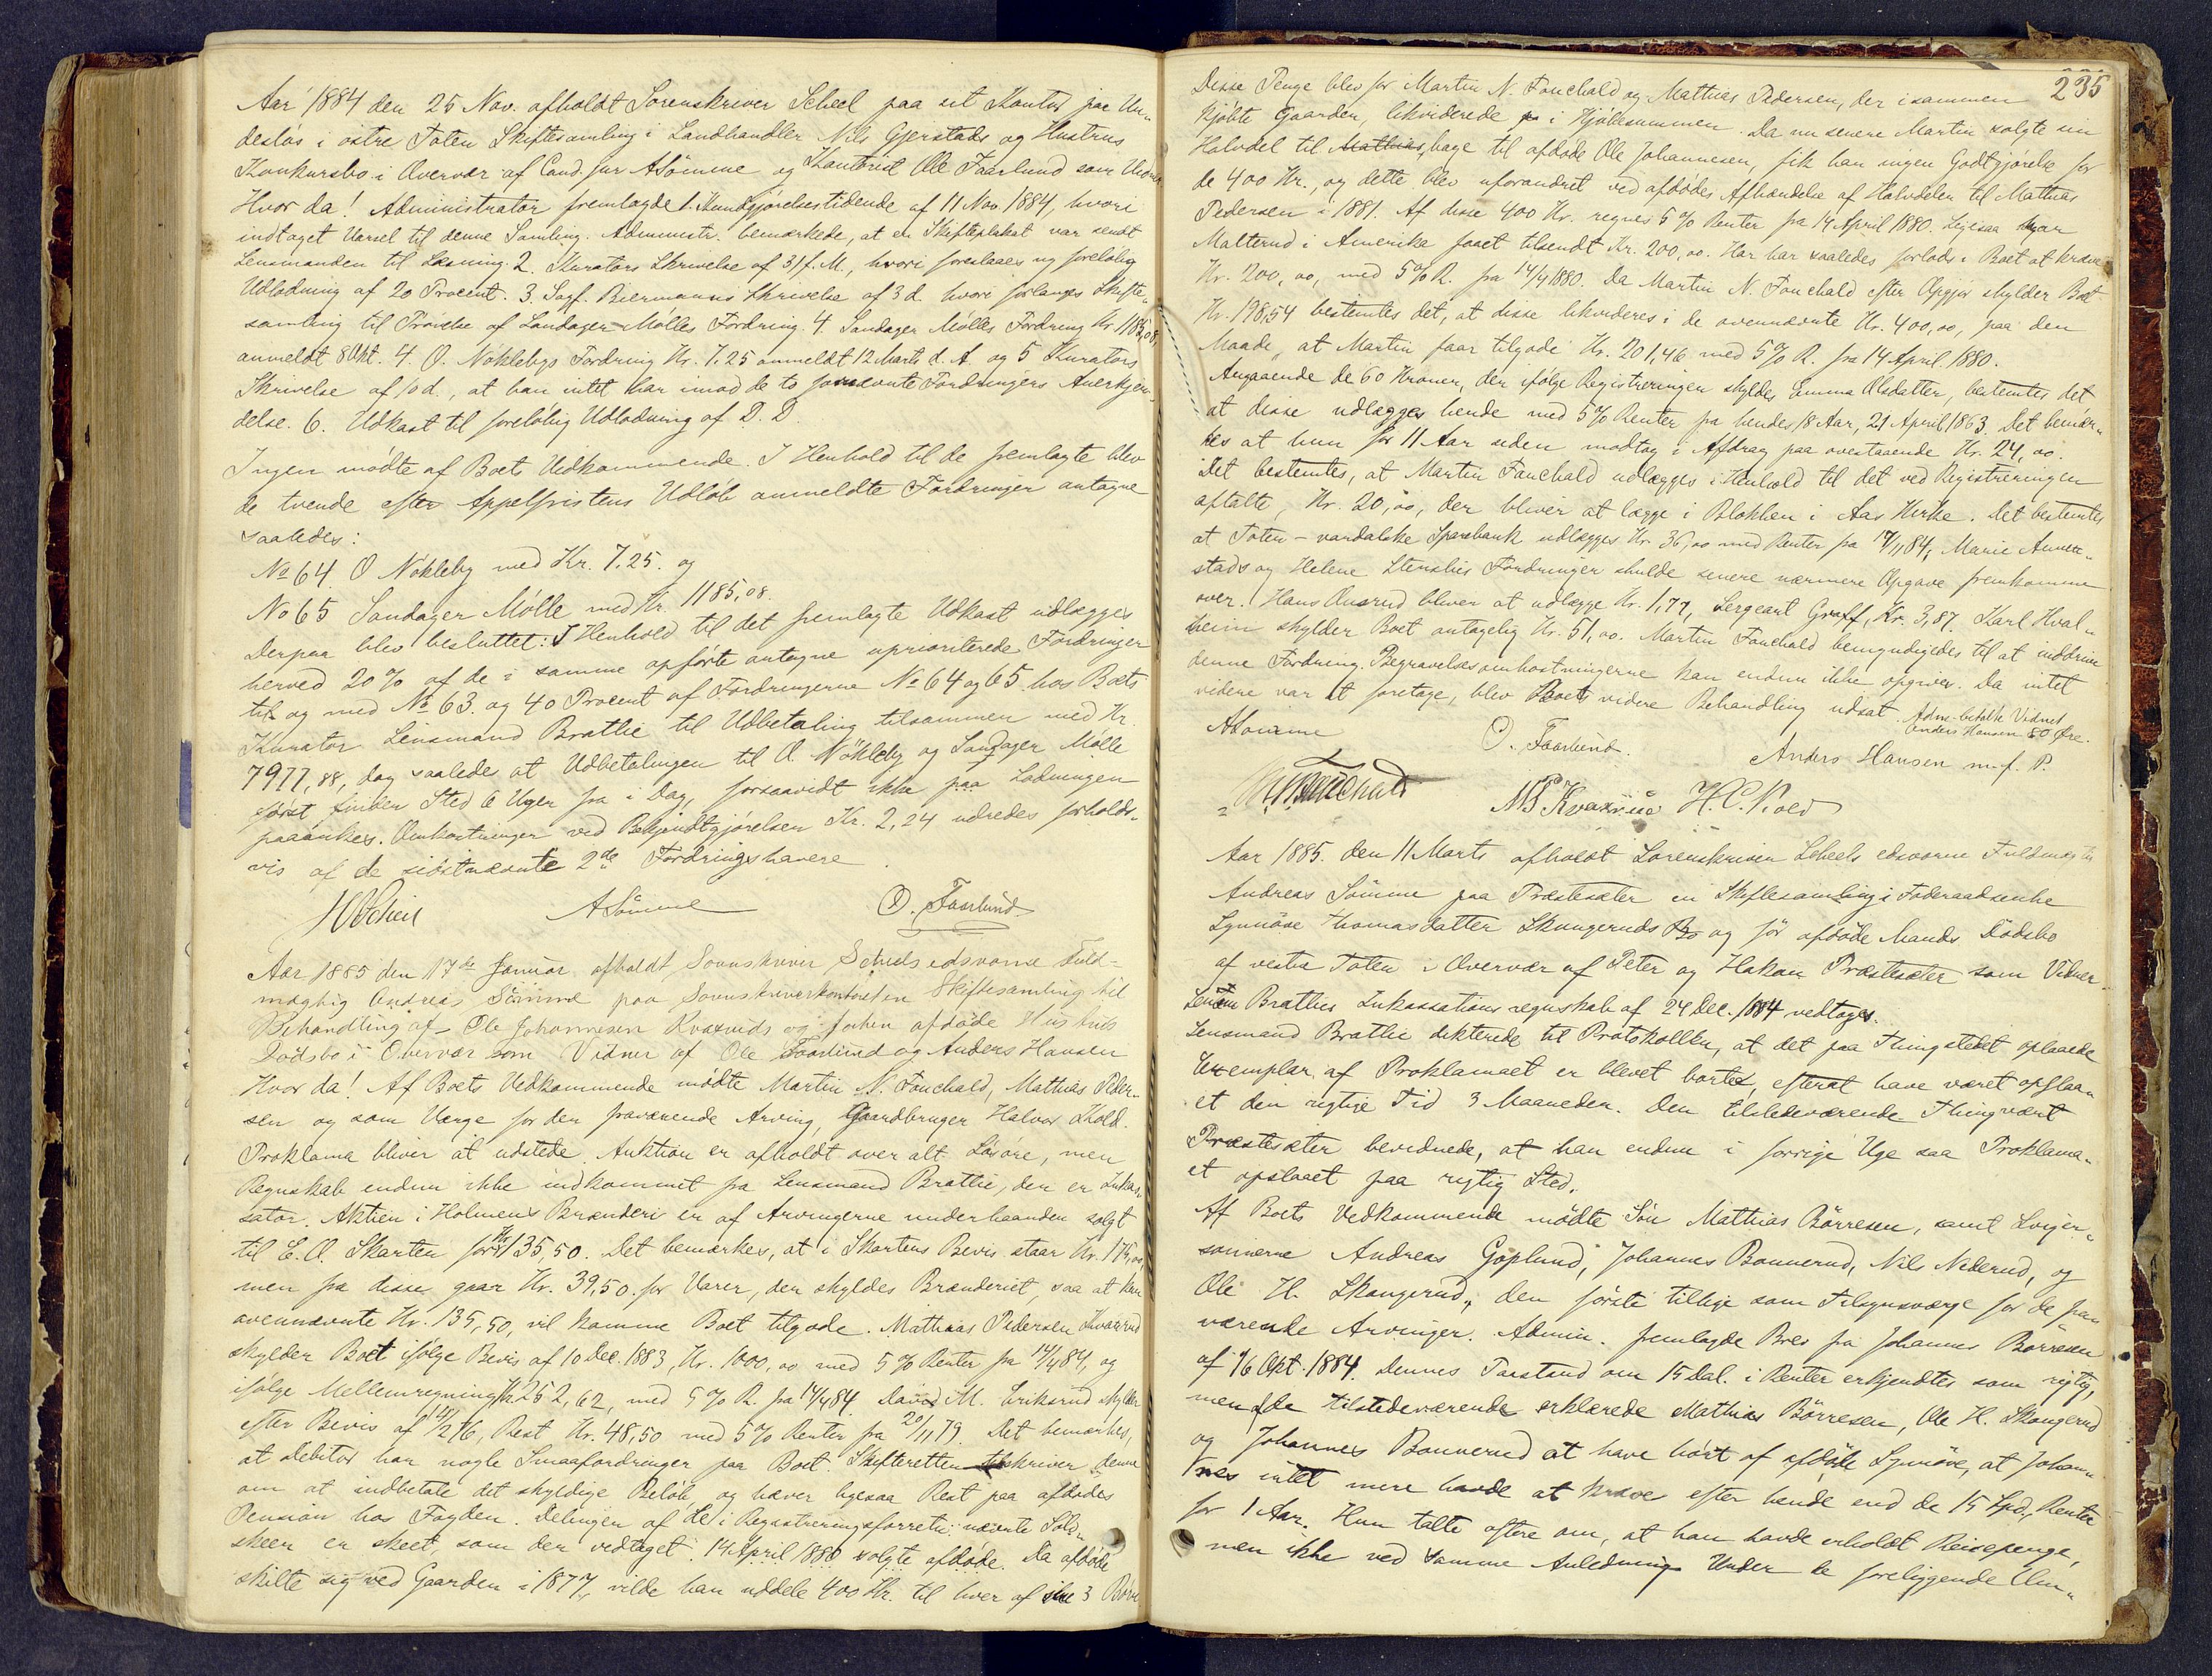 Aar 1884 den 25 Nov. afholdt Sorenskriver Scheel paa sit Kontor paa Un-
deslös i östre Toten Skiftesamling i Landhandler Nils Gjerstads og Hustrus
Konkursbo i Overvær af Cand. jur ASömme og Kontorist Ole Faarlund som Vidner
Hvor da! Administrator fremlagde 1. Kundgjörelsestidende af 11 Nov. 1884, hvori
indtaget Varsel til denne Samling. Administr. bemærkede, at en Skifteplakat var sendt
Lensmanden til Læsning. 2. Kurators Skrivelse af 31 f. M., hvori foreslaaes ny forelöbig
Udlodning af 20 Procent. 3. Sagf. Biermanns Skrivelse af 3 d. hvori forlanges Skifte-
samling til Prövelse af Sandager Mölles Fordring. 4. Sandager Mölles Fordring Kr. 1185,08,
anmeldt 8 Okt. 4. O. Nöklebys Fordring Kr. 7.25 anmeldt 12 Marts d. A. og 5 Kurators
Skrivelse af 10 d., at han intet har imod de to fornævnte Fordringers Anerkjen-
delse. 6. Udkast til forelöbig Udlodning af D. D.
Ingen mödte af Boets Vedkommende. I Henhold til de fremlagte blev
de tvende efter Appelfristens Udlöb anmeldte Fordringer antagne
saaledes:
No 64 O Nökleby med Kr. 7.25. og
No 65 Sandager Mölle med Kr. 1185,08.
Derpaa blev besluttet: I Henhold til det fremlagte Udkast udlægges
herved 20 % af de i samme opförte antagne uprioriterede Fordringer
til og med No 63. og 40 Procent af Fordringerne No 64 og 65 hos Boets
Kurator Lensmand Brattlie til Udbetaling tilsammen med Kr.
7977,88, dog saaledes at Udbetalingen til O. Nökleby og Sandager Mölle
först finder Sted 6 Uger fra i Dag, forsaavidt ikke paa Lodningen
paaankes. Omkostninger ved Bekjendtgjörelsen Kr. 2,24 udredes forholds-
vis af de sidstnævnte 2de Fordringshavere.
ASömme O. Faarlund
Aar 1885 den 17de Januar afholdt Sorenskriver Scheels edsvorne Fuld-
mægtig Andreas Sömme paa Sorenskriverkontoret en Skiftesamling til
Behandling af Ole Johannesen Kvaxruds og forhen afdöde Hustrus
Dödsbo i Overvær som Vidner af Ole Faarlund og Anders Hansen
Hvor da! Af Boets Vedkommende mödte Martin N. Fauchald, Mathias Peder-
sen og som Værge for den fraværende Arving, Gaardbruger Halvor Kold.
Proklama bliver at udstede. Auktion er afholdt over alt Lösöre, men
Regnskab endnu ikke indkommet fra Lensmand Brattlie, der er Inkas-
sator. Aktien i Holmens Brænderi er af Arvingerne underhaanden solgt
til E. O. Skarten for Kr 135,50. Det bemærkes, at i Skartens Bevis staar Kr. 175,00,
men fra disse gaar Kr. 39,50. for Varer, der skyldes Brænderiet, saa at kun
ovennævnte Kr. 135,50, vil komme Boet tilgode. Mathias Pedersen Kvaxrud
skylder Boet ifölge Bevis af 10 Dec. 1883, Kr. 1000,00 med 5 % Renter fra 14/4 84, og
ifölge Mellemregning Kr 252,62, med 5 % R. fra 14/4 84. David M. Eriksrud skylder
efter Bevis af 14/2 76, Rest Kr. 48,50 med 5 % Renter fra 20/11 79. Det bemærkes,
at Debitor har nogle Smaafordringer paa Boet. Skifteretten tilskriver denne
om at indbetale det skyldige Belöb, og hæver ligesaa Rest paa afdödes
Pension hos Fogden. Delingen af de i Registreringsforretn: nævnte Söld-
skeer er skeet, som der vedtaget. 14 April 1880 solgte afdöde. Da afdöde
skilte sig ved Gaarden i 1877, vilde han uddele 400 Kr. til hver af sine 3 Börn
235
Disse Penge blev for Martin N. Fauchald og Mathias Pedersen, der isammen
kjöbte Gaarden, likviderede i Kjöbesummen. Da nu senere Martin solgte sin
Halvdel til Mathias, bage til afdöde Ole Johannesen, fik han ingen Godtgjörelse for
de 400 Kr., og dette blev uforandret ved afdödes Afhændelse af Halvdelen til Mathias
Pedersen i 1881. Af disse 400 Kr. regnes 5 % Renter fra 14 April 1880. Ligesaa har
Malterud i Amerika faaet tilsendt Kr. 200,00. Har har saaledes forlods i Boet at kræve
Kr. 200,00, med 5 % R. fra 14/4 1880. Da Martin N. Fauchald efter Opgjör skylder Boet
Kr. 198,54 bestemtes det, at disse likvideres i de ovennævnte Kr. 400,00, paa den
Maade, at Martin faar tilgode Kr. 201,46 med 5 % R. fra 14 April 1880.
Angaaende de 60 Kroner, der ifölge Registreringen skyldes Emma Olsdatter, bestemtes det
at disse udlægges hende med 5 % Renter fra hendes 18 Aar, 21 April 1863. Det bemær-
kes at hun for 11 Aar siden modtog i Afdrag paa ovestaaende Kr. 24,00.
Det bestemtes, at Martin Fauchald udlægges i Henhold til det ved Registreringen
aftalte, Kr. 20,00, der bliver at lægge i Blokken i Aas Kirke. Det bestemtes
at Toten-vardalske Sparebank udlægges Kr 36,00 med Renter fra 17/11 84, Marie Annex-
stads og Helene Stenslies Fordringer skulde senere nærmere Opgave fremkomme
over. Hans Ousrud bliver at udlægge Kr. 1,77, Sergeant Graff, Kr. 3,87. Karl Hval-
heim skylder Boet antagelig Kr. 51,00. Martin Fauchald bemyndigedes til at inddrive
denne Fordring. Begravelsesomkostningerne kan endnu ikke opgives. Da intet
videre var at foretage, blev Boets videre Behandling udsat. Adm. betalte Vidnet
Anders Hansen 80 Öre.
ASömme O. Faarlund. Anders Hansen m. f. P.
M N Fauchald MP Kvaxrud H. C. Kold
Aar 1885. den 11 Marts afholdt Sorenskriver Scheels edsvorne Fuldmægtig
Andreas Sömme paa Præstesæter en Skiftesamling i Föderaadsenke
Synnöve Thomasdatter Skungeruds Bo og för afdöde Mands Dödsbo
af vestre Toten i Overvær af Peter og Hakon Præstesæter som Vidner.
Lensm Brattlies Inkassationsregnskab af 24 Dec. 1884 vedtages.
Lensmand Brattlie dikterede til Protokollen, at det paa Thingstedet opslaaede
Exemplar af Proklamaet er blevet borte, efterat have været opslaa-
et den rigtige Tid 3 Maaneder. Den tilstedeværende Thingvært
Præstesæter bevidnede, at han endnu i forrige Uge saa Proklama-
et opslaaet paa rigtig Sted.
Af Boets Vedkommende mödte Sön Mathias Börresen, samt Svijer-
sönnerne Andreas Göplund, Johannes Bonnerud, Nils Nederud, og
Ole H. Skongerud, den förste tillige som Tilsynsværge for de fra-
værende Arvinger. Admin. fremlagde Brev fra Johannes Börresen
af 16 Okt. 1884. Dennes Paastand om 15 Dal. i Renter erkjendtes som rigtig,
men de tilstedeværende erklærede Mathias Börresen, Ole H. Skongerud
og Johannes Bonnerud at have hört af afdöde Synnöve, at Johan-
nes intet mere havde at kræve efter hende end de 15 Spd, Renter
for 1 Aar. Hun talte oftere om, at han havde erholdt Reisepenge,
men ikke ved samme Anledning. Under de foreliggende Om-